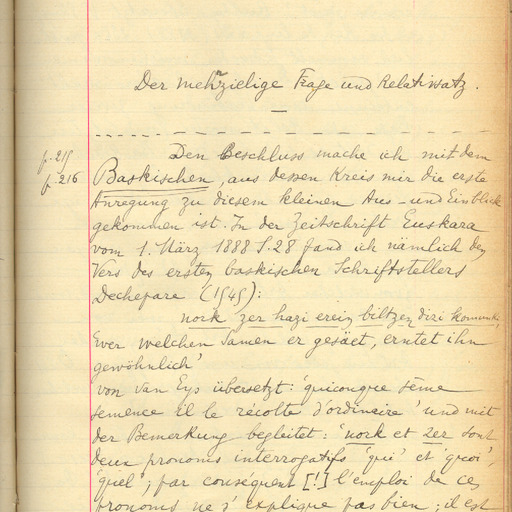 Der mehrzielige Frage und Relativsatz.
p. 215
p. 216
Den Beschluss mache ich mit dem
Baskischen, aus dessen Kreis mir die erste
Anregung zu diesem kleinen Aus- und Einblick
gekommen ist. In der Zeitschrift Euskara
vom 1. März 1888 S. 28 fand ich nämlich den
Vers des ersten baskischen Schriftstellers
Dechepare (1545):
nork zer hazi erein biltzen dizi komunki,
'wer welchen Samen er gesäet, erntet ihn
gewöhnlich'
von van Eys übersetzt: 'quiconque sème
semence il le récolte d'ordinaire' und mit
der Bemerkung begleitet: 'nork et zer sont
deux pronoms interrogatifs 'qui' et 'quoi',
'quel'; par conséquent [!] l'emploi de ces
pronoms ne s'explique pas bien; il est